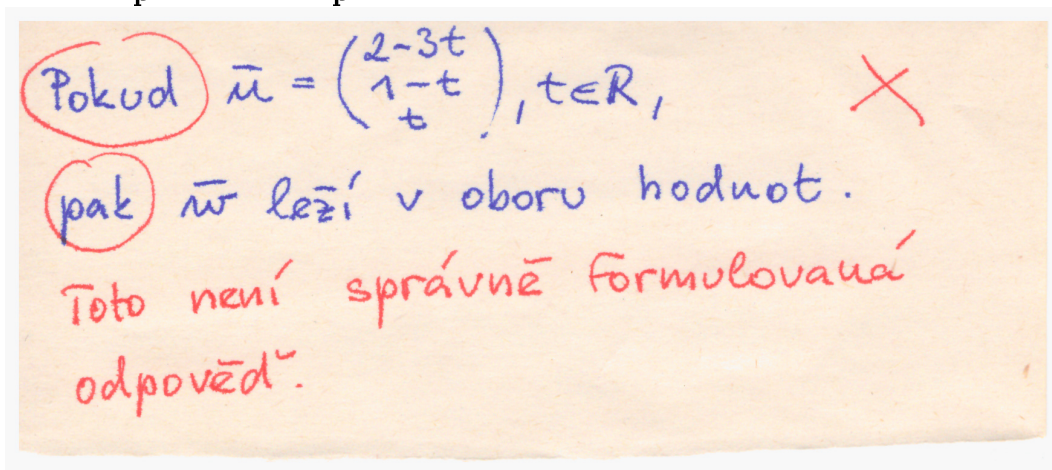 Pokud ū = (2-3t
1-t
t), t∈R,
pak w̄ leží v oboru hodnot.
Toto není správně formulovaná
odpověď.